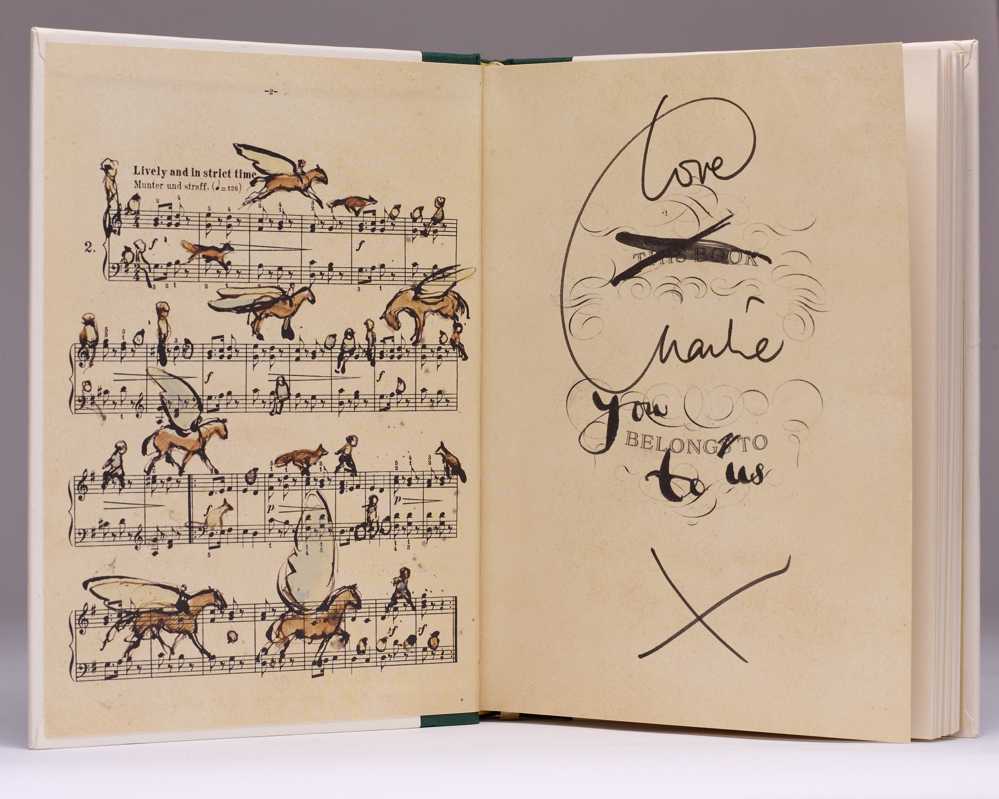 -2-
Lively and in strict time.
Munter und straff. (♩=126)
2.
f
f
f
f
p
p
sf
sf
Love
THIS BOOK
Charlie
you
BELONGS TO
to us
X